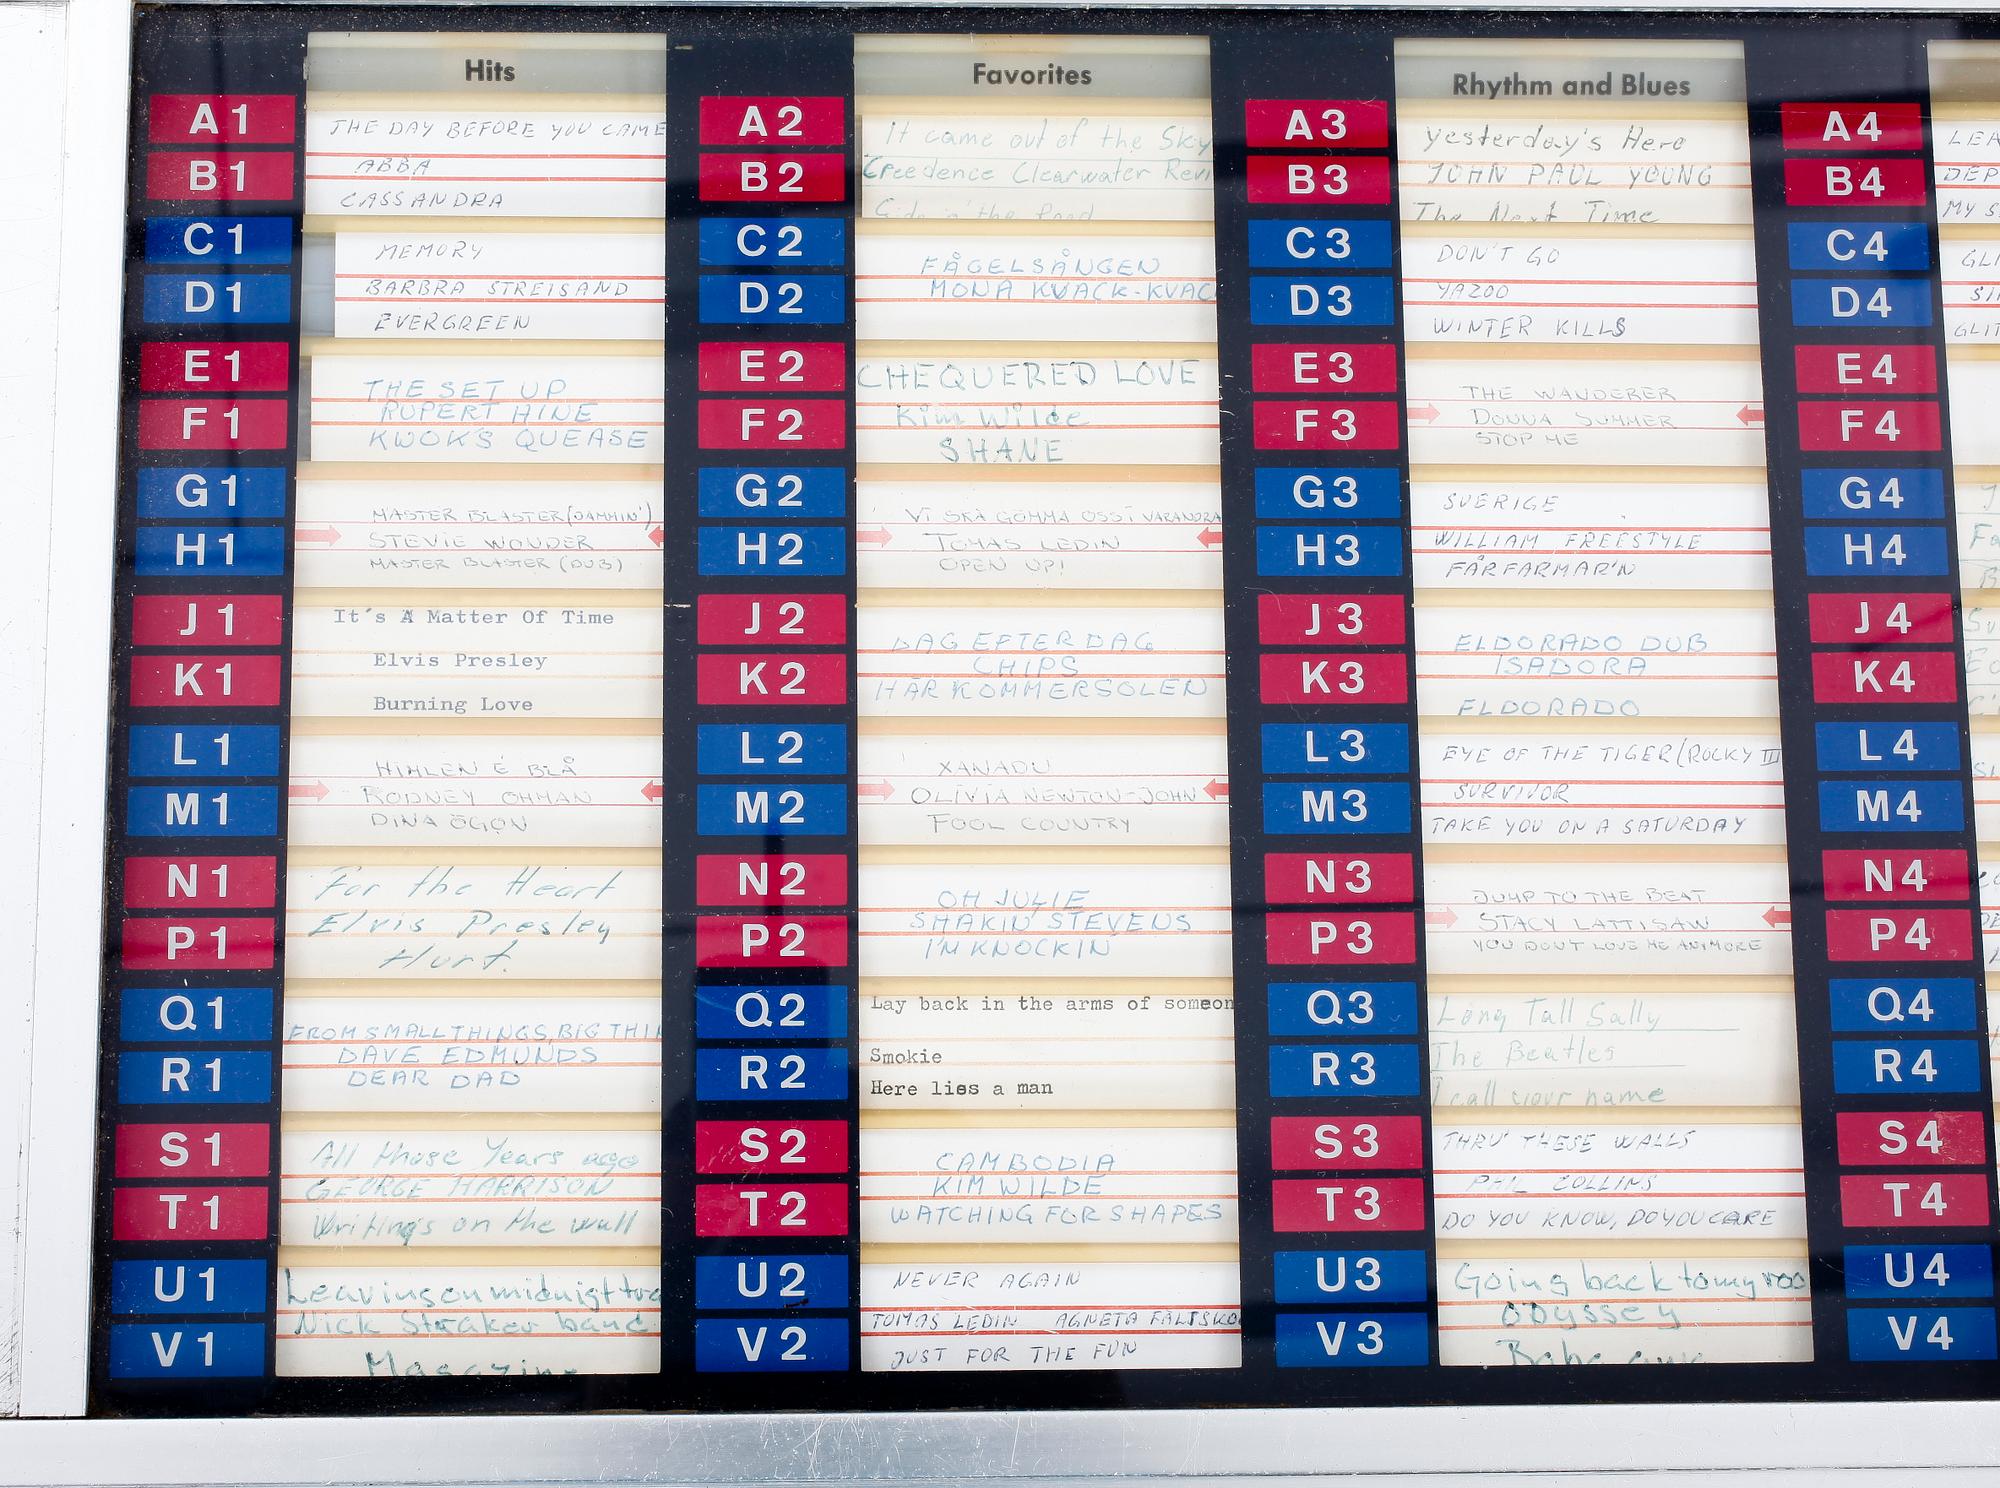 Hits
A1
THE DAY BEFORE YOU CAME
B1
ABBA
CASSANDRA
C1
MEMORY
D1
BARBRA STREISAND
EVERGREEN
E1
THE SET UP
F1
RUPERT HINE
KWOK'S QUEASE
G1
MASTER BLASTER (JAMMIN')
H1
STEVIE WONDER
MASTER BLASTER (DUB)
J1
It's A Matter Of Time
K1
Elvis Presley
Burning Love
L1
HIMLEN É BLÅ
M1
RODNEY ÖHMAN
DINA ÖGON
N1
For the Heart
P1
Elvis Presley
Hurt.
Q1
FROM SMALL THINGS, BIG THI
R1
DAVE EDMUNDS
DEAR DAD
S1
All those Years ago
T1
GEORGE HARRISON
Writings on the wall
U1
Leaving on midnight tra
V1
Nick Straker band
Magazine
Favorites
A2
It came out of the Sky
B2
Creedence Clearwater Revi
Side o' the Road
C2
FÅGELSÅNGEN
D2
MONA KVACK-KVAC
E2
CHEQUERED LOVE
F2
Kim Wilde
SHANE
G2
VI SKA GÖMMA OSS I VARANDRA
H2
TOMAS LEDIN
OPEN UP!
J2
DAG EFTER DAG
K2
CHIPS
HÄR KOMMER SOLEN
L2
XANADU
M2
OLIVIA NEWTON-JOHN
FOOL COUNTRY
N2
OH JULIE
P2
SHAKIN' STEVENS
I'M KNOCKIN
Q2
Lay back in the arms of someon
R2
Smokie
Here lies a man
S2
CAMBODIA
T2
KIM WILDE
WATCHING FOR SHAPES
U2
NEVER AGAIN
V2
TOMAS LEDIN AGNETA FÄLTSKO
JUST FOR THE FUN
Rhythm and Blues
A3
Yesterday's Hero
B3
JOHN PAUL YOUNG
The Next Time
C3
DON'T GO
D3
YAZOO
WINTER KILLS
E3
THE WANDERER
F3
DONNA SUMMER
STOP ME
G3
SVERIGE
H3
WILLIAM FREESTYLE
FÅRFARMAR'N
J3
ELDORADO DUB
K3
ISADORA
ELDORADO
L3
EYE OF THE TIGER (ROCKY III
M3
SURVIVOR
TAKE YOU ON A SATURDAY
N3
JUMP TO THE BEAT
P3
STACY LATTISAW
YOU DON'T LOVE ME ANYMORE
Q3
Long Tall Sally
R3
The Beatles
I call your name
S3
THRU' THESE WALLS
T3
PHIL COLLINS
DO YOU KNOW, DO YOU CARE
U3
Going back to my roo
V3
Odyssey
A4
LEA
B4
DEP
MY S
C4
GLI
D4
SI
GLIT
E4
F4
G4
H4
Fa
B
J4
Su
K4
L4
M4
N4
P4
Q4
R4
S4
T4
U4
V4